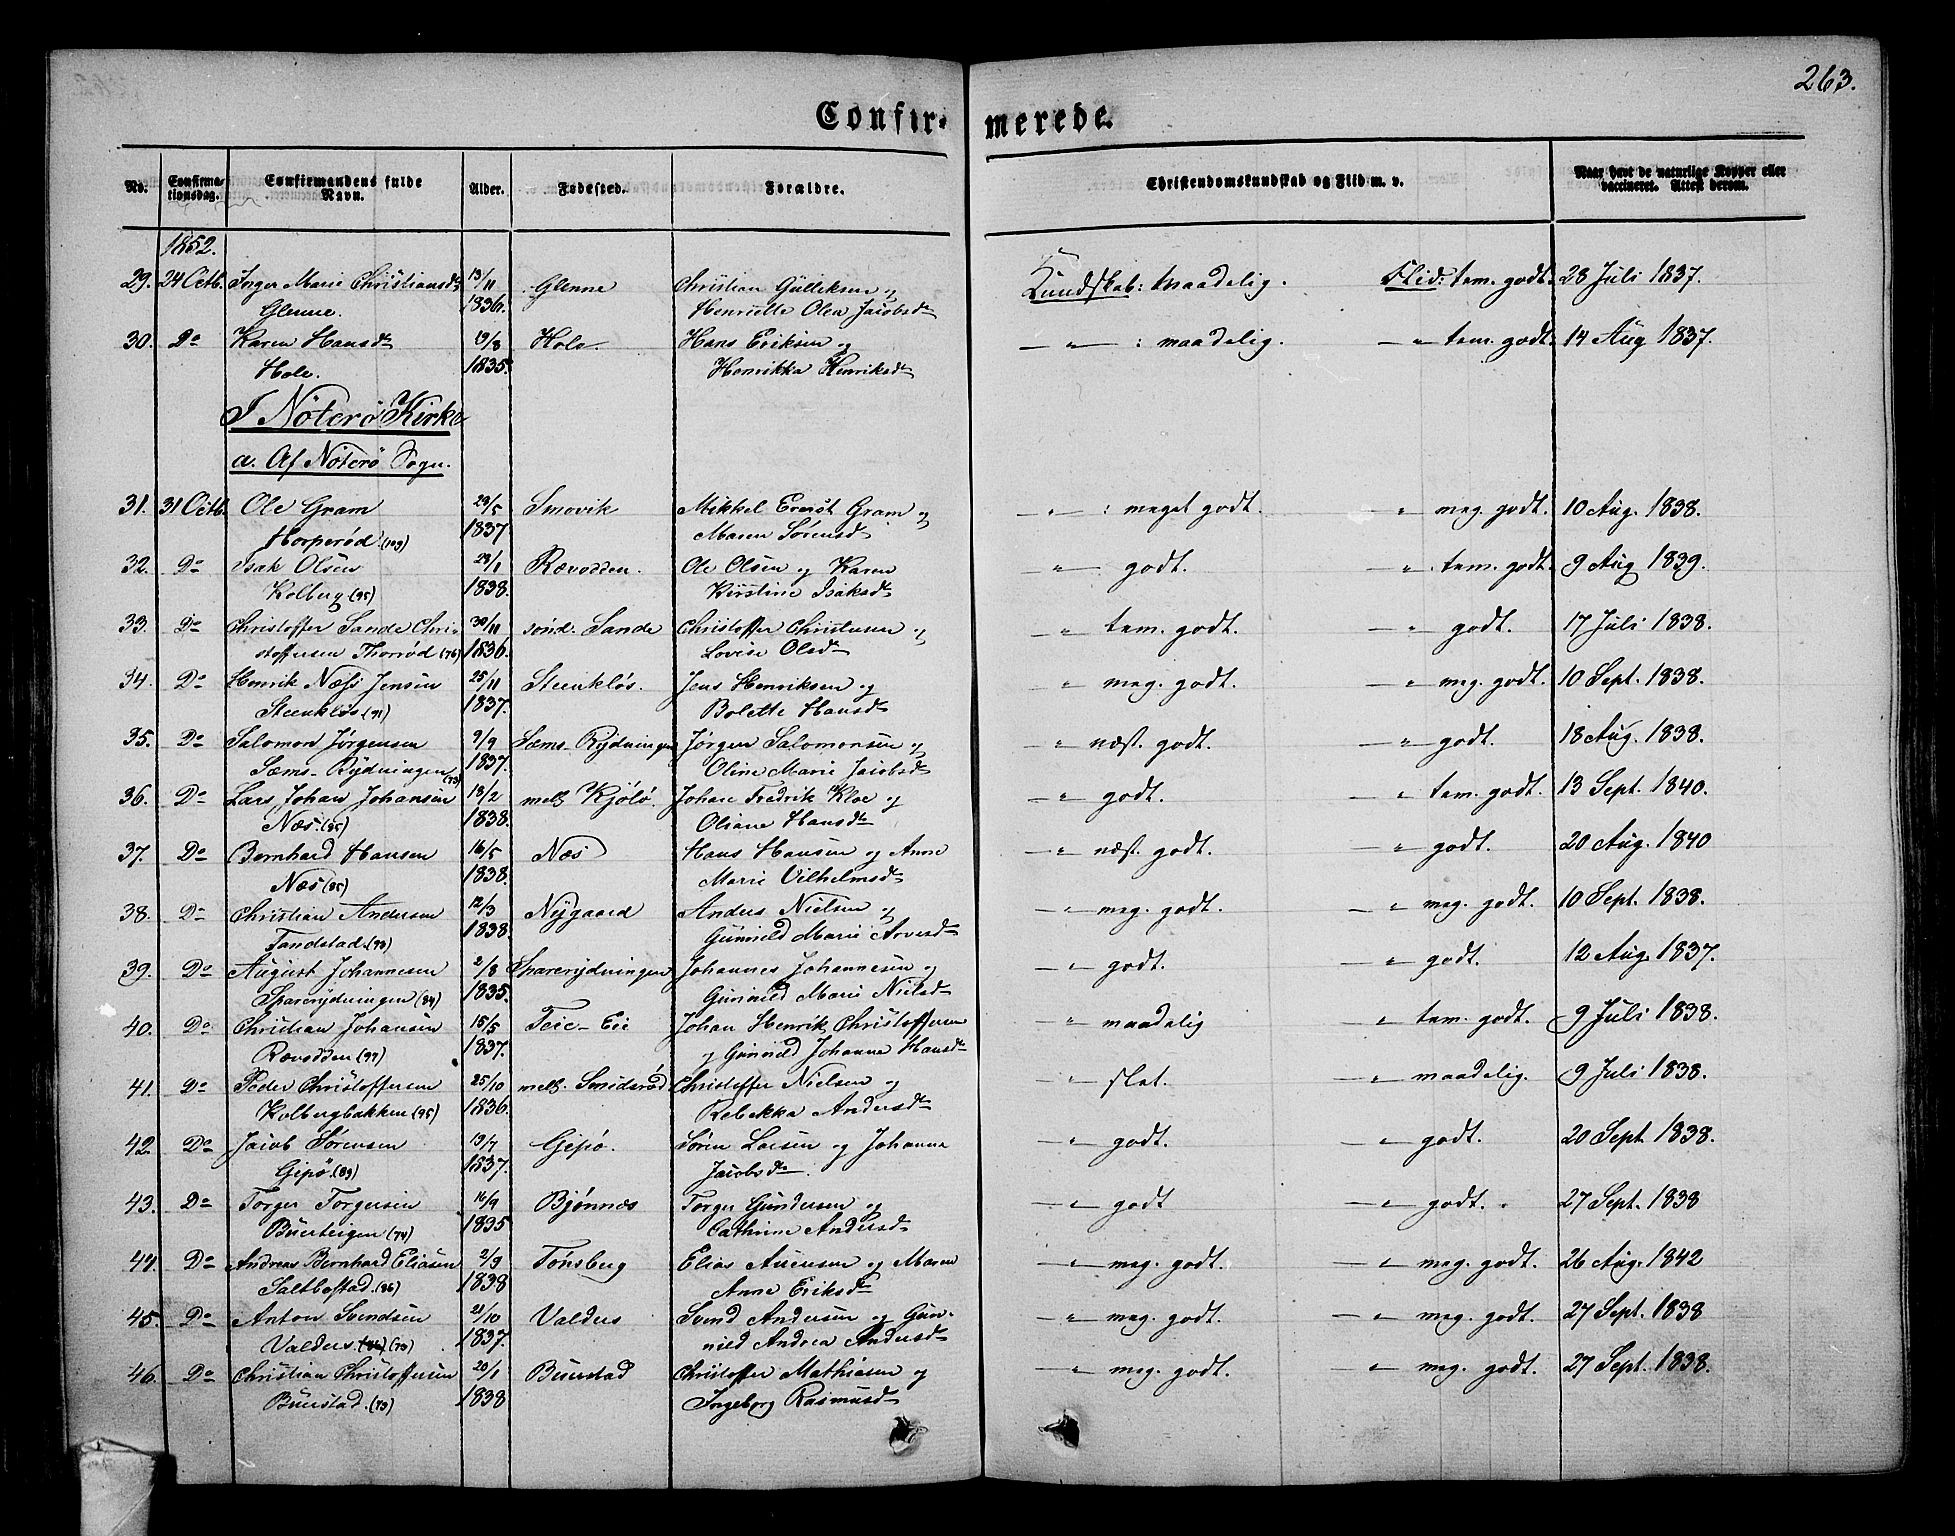 263.
Confir- merede.
No. Confirma- Confirmandens fulde Alder. Fødested. Forældre. Christendomskundskab og Flid m. v. Naar havt de naturlige Kopper eller
tionsdag. Navn. vaccineret. Attest derom.
1852.
29. 24 Octb. Inger Marie Christiansdr 13/11 Glenne Christian Gulliksen og Kundskab: maadelig. Flid: tem. godt. 28 Juli 1837.
Glenne. 1836. Henriette Olea Jacobsdr
30. Do Karen Hansdr 19/8 Hole. Hans Eriksen og — " — : maadelig. — " tem. godt. 14 Aug 1837.
Hole. 1835. Henrikka Henriksdr
I Nöterö Kirke
a. Af Nöterö Sogn.
31. 31 Octb. Ole Gram 29/5 Smovik Mikkel Evert Gram og — " — : meget godt. — " meg. godt. 10 Aug. 1838.
Horperød (103) 1837. Maren Sørensd
32. Do Isak Olsen 23/1 Rævodden. Ole Olsen og Karen — " godt. — " tem. godt. 9 Aug 1839.
Kolberg (95) 1838. Kirstine Isaksdr
33. Do Christoffer Sande Chri- 30/11 sönd. Sande Christoffer Christensen og — " tem. godt. — " godt. 17 Juli 1838.
stoffersen Thorrød (76) 1836. Lovise Olsdr
34. Do Henrik Næss Jensen 25/11 Steenkløs. Jens Henriksen og — " meg. godt. — " meg. godt. 10 Sept. 1838.
Steenkløs (91) 1837. Bolette Hansdr
35. Do Salomon Jørgensen 9/9 Sæms-Rydningen Jørgen Salomonsen og — " næst. godt. — " godt. 18 Aug. 1838.
Sæms-Rydningen (73) 1837. Oline Marie Jacobsdr
36. Do Lars Johan Johansen 13/2 mell. Kjölö. Johan Fredrik Kloe og — " godt. — " tem. godt. 13 Sept. 1840.
Næs. (85) 1838. Oliane Hansdr
37. Do Bernhard Hansen 16/5 Næs Hans Hansen og Anne — " næst. godt. — " godt. 20 Aug. 1840
Næs (85) 1838. Marie Vilhelmsdr
38. Do Christian Andersen 12/3 Nygaard Anders Nielsen og — " meg. godt. — " meg. godt. 10 Sept. 1838.
Tandstad. (93) 1838. Gunnild Marie Arvesdr
39. Do August Johannesen 2/8 Sparerydningen Johannes Johannesen og — " godt. — " godt. 12 Aug. 1837.
Sparerydningen (84) 1835. Gunnild Marie Nielsdr
40. Do Christian Johansen 15/5 Teie-Eie Johan Henrik Christoffersen — " maadelig — " tem. godt. 9 Juli 1838.
Rævodden (97) 1837. og Gunnild Johanne Hansdr
41. Do Peder Christoffersen 25/10 mell. Smidsrød Christoffer Nielsen og — " slet. — " maadelig. 9 Juli 1838.
Kolbergbakken (95) 1836. Rebekka Andersdr
42. Do Jacob Sørensen 13/7 Gipø. Sören Larsen og Johanna — " godt. — " godt. 20 Sept 1838.
Gipø. (89) 1837. Jacobsdr
43. Do Torger Torgersen 16/9 Bjønnæs Torger Gundersen og — " godt — " godt. 27 Sept. 1838
Buerteigen (74) 1835 Cathrine Andersdr
44. Do Andreas Bernhard Eliasen 2/3 Tönsberg Elias Aurensen og Maren — " meg. godt. — " meg. godt. 26 Aug. 1842
Saltbostad. (96) 1838 Anne Eriksdr
45. Do Anton Svendsen 21/10 Valders Svend Andersen og Gun- — " meg. godt. — " meg. godt. 27 Sept. 1838
Valders. (73) 1837. nild Andrea Andersdr
46. Do Christian Christoffersen 20/1 Buerstad Christoffer Mathiasen og — " meg. godt. — " meg. godt. 27 Sept. 1838.
Buerstad. (73) 1838 Ingeborg Rasmusdr